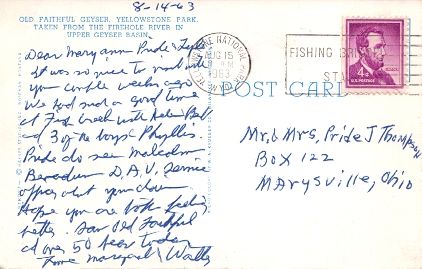 8-14-63
OLD FAITHFUL GEYSER, YELLOWSTONE PARK,
TAKEN FROM THE FIREHOLE RIVER IN
UPPER GEYSER BASIN.
Dear Maryann Pride &
It was so nice to visit with
you couple weeks ago
We had such a good time
at Fish Creek with
ad 3 of the boys & Phyllis.
Pride do see Malcolm
D.A.V. Service
officer abt your claim
Hope you are both feeling
better. Saw Old Faithful
ad over 50 bear today
Love Margaret & Walter
YELLOWSTONE NATIONAL PARK, WYO.
AUG 15
PM
1963
FISHING
4¢
U.S. POSTAGE
POST CARD
Mr. & Mrs. Pride J Thompson
BOX 122
MARYSVILLE, Ohio